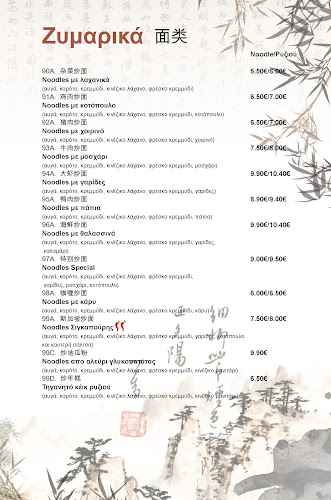 Ζυμαρικά 面类
Noodle/Ρυζιού
90A. 杂菜炒面 5.50€/6.00€
Noodles με λαχανικά
(αυγά, καρότο, κρεμμύδι, κινέζικο λάχανο, φρέσκο κρεμμύδι)
91A. 鸡肉炒面 6.50€/7.00€
Noodles με κοτόπουλο
(αυγά, καρότο, κρεμμύδι, κινέζικο λάχανο, φρέσκο κρεμμύδι, κοτόπουλο)
92A. 猪肉炒面 6.50€/7.00€
Noodles με χοιρινό
(αυγά, καρότο, κρεμμύδι, κινέζικο λάχανο, φρέσκο κρεμμύδι, χοιρινό)
93A. 牛肉炒面 7.50€/8.00€
Noodles με μοσχάρι
(αυγά, καρότο, κρεμμύδι, κινέζικο λάχανο, φρέσκο κρεμμύδι, μοσχάρι)
94A. 大虾炒面 9.90€/10.40€
Noodles με γαρίδες
(αυγά, καρότο, κρεμμύδι, κινέζικο λάχανο, φρέσκο κρεμμύδι, γαρίδες)
95A. 鸭肉炒面 8.90€/9.40€
Noodles με πάπια
(αυγά, καρότο, κρεμμύδι, κινέζικο λάχανο, φρέσκο κρεμμύδι, πάπια)
96A. 海鲜炒面 9.90€/10.40€
Noodles με θαλασσινά
(αυγά, καρότο, κρεμμύδι, κινέζικο λάχανο, φρέσκο κρεμμύδι, γαρίδες,
καλαμάρι)
97A. 特别炒面 9.00€/9.50€
Noodles Special
(αυγά, καρότο, κρεμμύδι, κινέζικο λάχανο, φρέσκο κρεμμύδι,
γαρίδες, μοσχάρι, κοτόπουλο)
98A. 咖喱炒面 6.00€/6.50€
Noodles με κάρυ
(αυγά, καρότο, κρεμμύδι, κινέζικο λάχανο, φρέσκο κρεμμύδι, κάρυ)
99A. 新加坡炒面 7.50€/8.00€
Noodles Σιγκαπούρης
(αυγά, καρότο, κρεμμύδι, κινέζικο λάχανο, φρέσκο κρεμμύδι, γαρίδες, κοτόπουλο
και καυτερή σάλτσα)
99C. 炒地瓜粉 9.90€
Noodles απο αλεύρι γλυκοπατάτας
(αυγά, καρότο, κρεμμύδι, κινέζικο λάχανο, φρέσκο κρεμμύδι, κινέζικο μανιτάρι)
99D. 炒年糕 6.50€
Τηγανητό κέικ ρυζιού
(αυγά, καρότο, κρεμμύδι, κινέζικο λάχανο, φρέσκο κρεμμύδι, κινέζικο μανιτάρι)